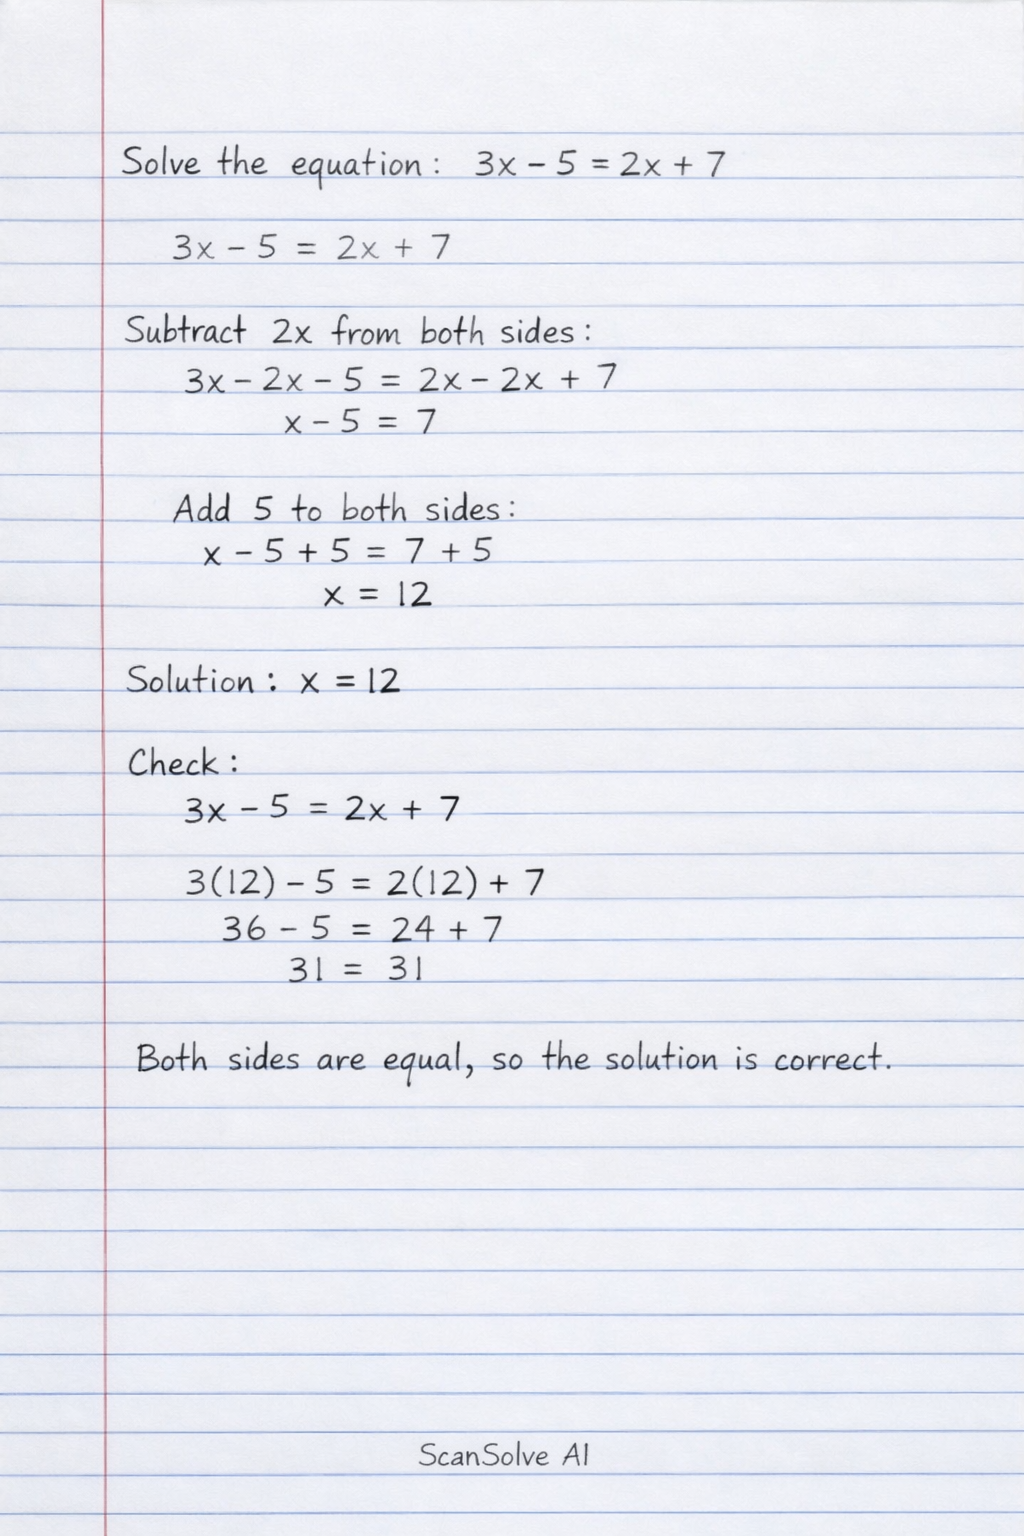 Solve the equation: 3x - 5 = 2x + 7
3x - 5 = 2x + 7
Subtract 2x from both sides:
3x - 2x - 5 = 2x - 2x + 7
x - 5 = 7
Add 5 to both sides:
x - 5 + 5 = 7 + 5
x = 12
Solution: x = 12
Check:
3x - 5 = 2x + 7
3(12) - 5 = 2(12) + 7
36 - 5 = 24 + 7
31 = 31
Both sides are equal, so the solution is correct.
ScanSolve AI